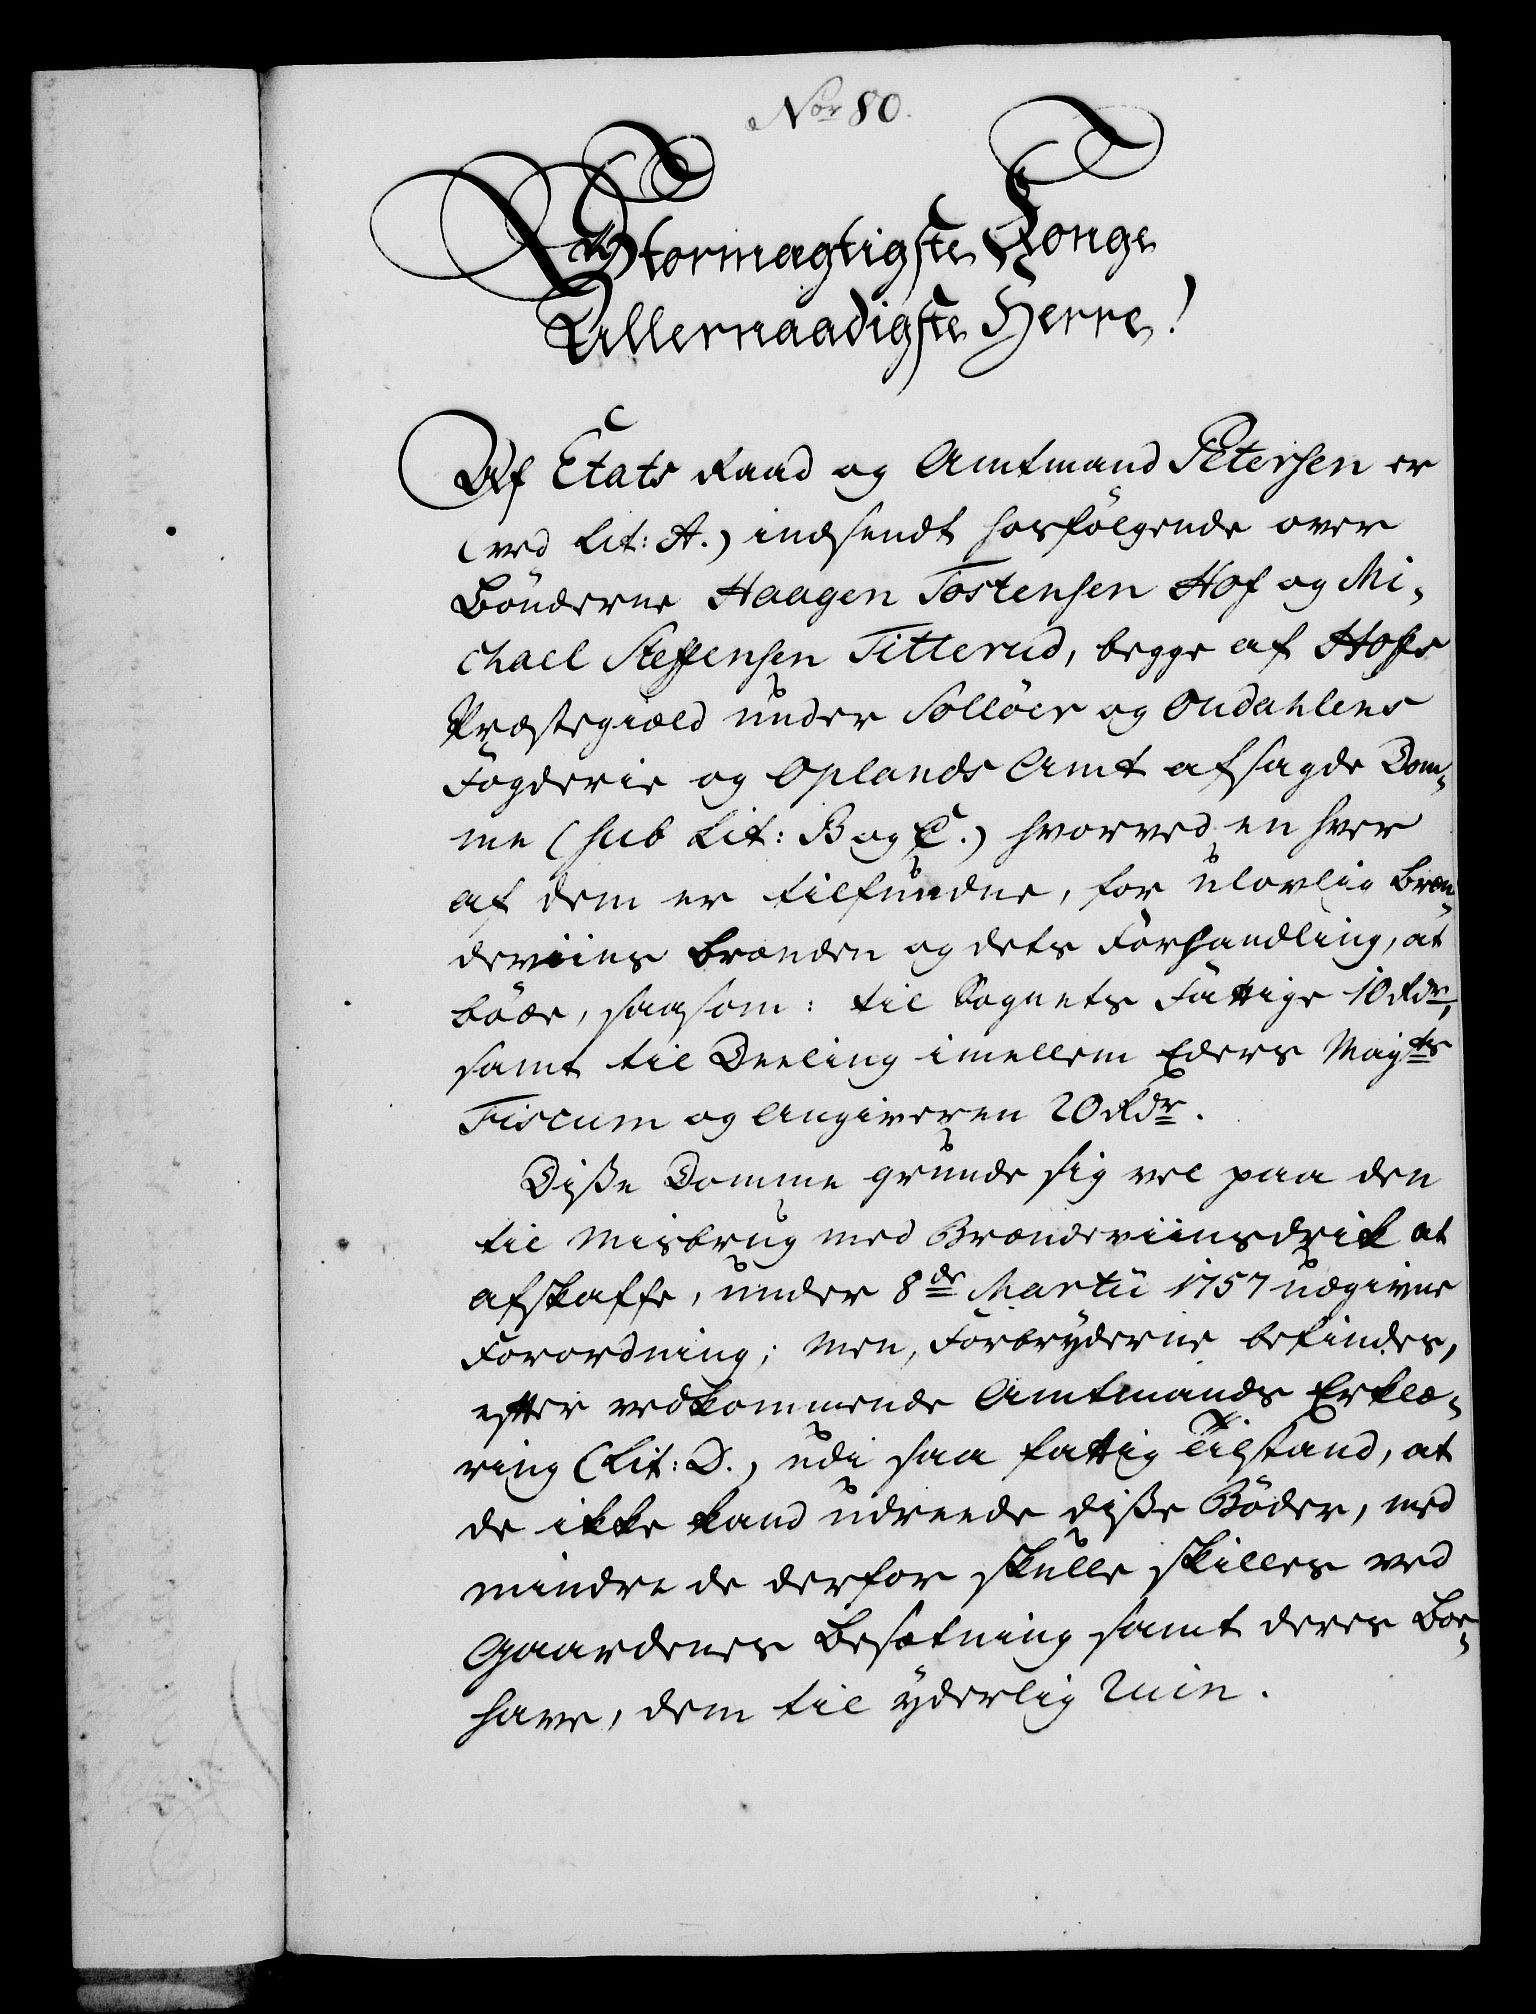 Nor 80.
Stormægtigste Konge
Allernaadigste Herre!
Af Etats Raad og Amtmand Petersen er
(ved Lit: A.) indsendt hosfölgende over
Bönderne Haagen Tostensen Hof og Mi-
chael Steffensen Titterud, begge af Hofs
Præstegiæld under Sollöer og Oudahlens
Fogderie og Oplands Amt afsagde Dom-
me (sub Lit: B og C.) hvorved en hver
af dem er tilfundne, for ulovlig Bræn-
deviins Brænden og dets Forhandling, at
böde, saasom: til Sognets Fattige 10 Rdr,
samt til Deeling imellem Eders Mayts
Fiscum og Angiveren 20 Rdr.
Disse Domme grunde sig vel paa den
til Misbrug med Brændeviinsdrik at
afskaffe, under 8de Martii 1757 udgivne
Forordning; Men, Forbryderne befindes,
efter vedkommende Amtmands Erklæ-
ring (Lit: D.) udi saa fattig Tilstand, at
de ikke kand udreede disse Böder, med
mindre de derfor skulle skilles ved
Gaardenes Besætning samt deres Boe-
have, dem til yderlig Ruin.